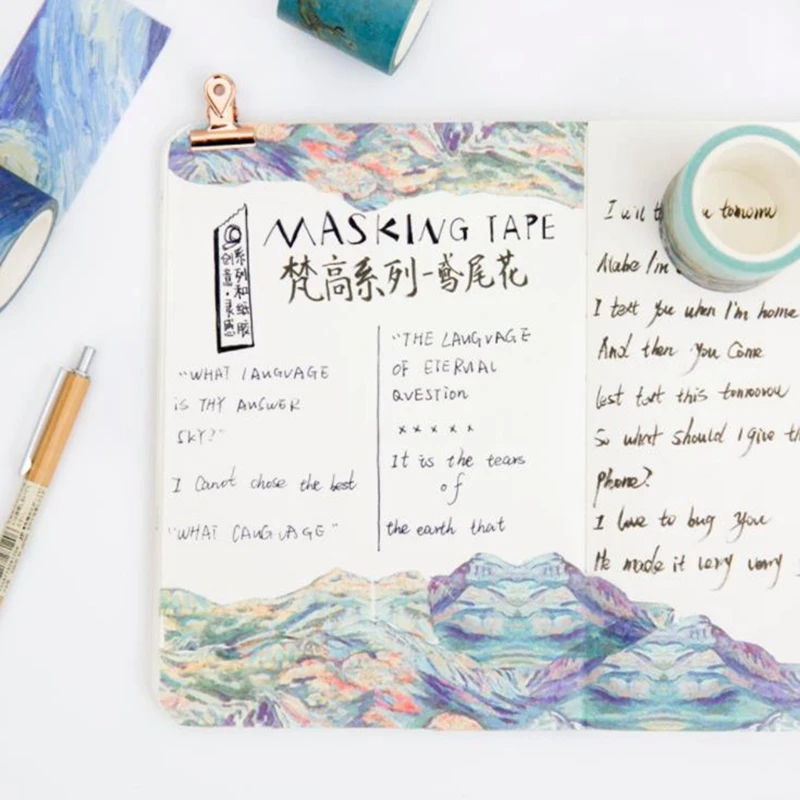 MASKING TAPE
梵高系列-鸢尾花
系列和纸胶
创意·灵感
"WHAT LANGUAGE
iS THY ANSWER
SKY?"
I Canot chose the best
"WHAT CAUGUAGE"
"THE LAUGVAGE
OF ETERUAL
QVESTiON
×××××
It is the tears
of
the earth that
I will
u tomorrow
Mabe I'm
I text you when I'm home
And then you Come
last text this tomoorow
So what should I give
phone?
I love to bug you
He made it very very